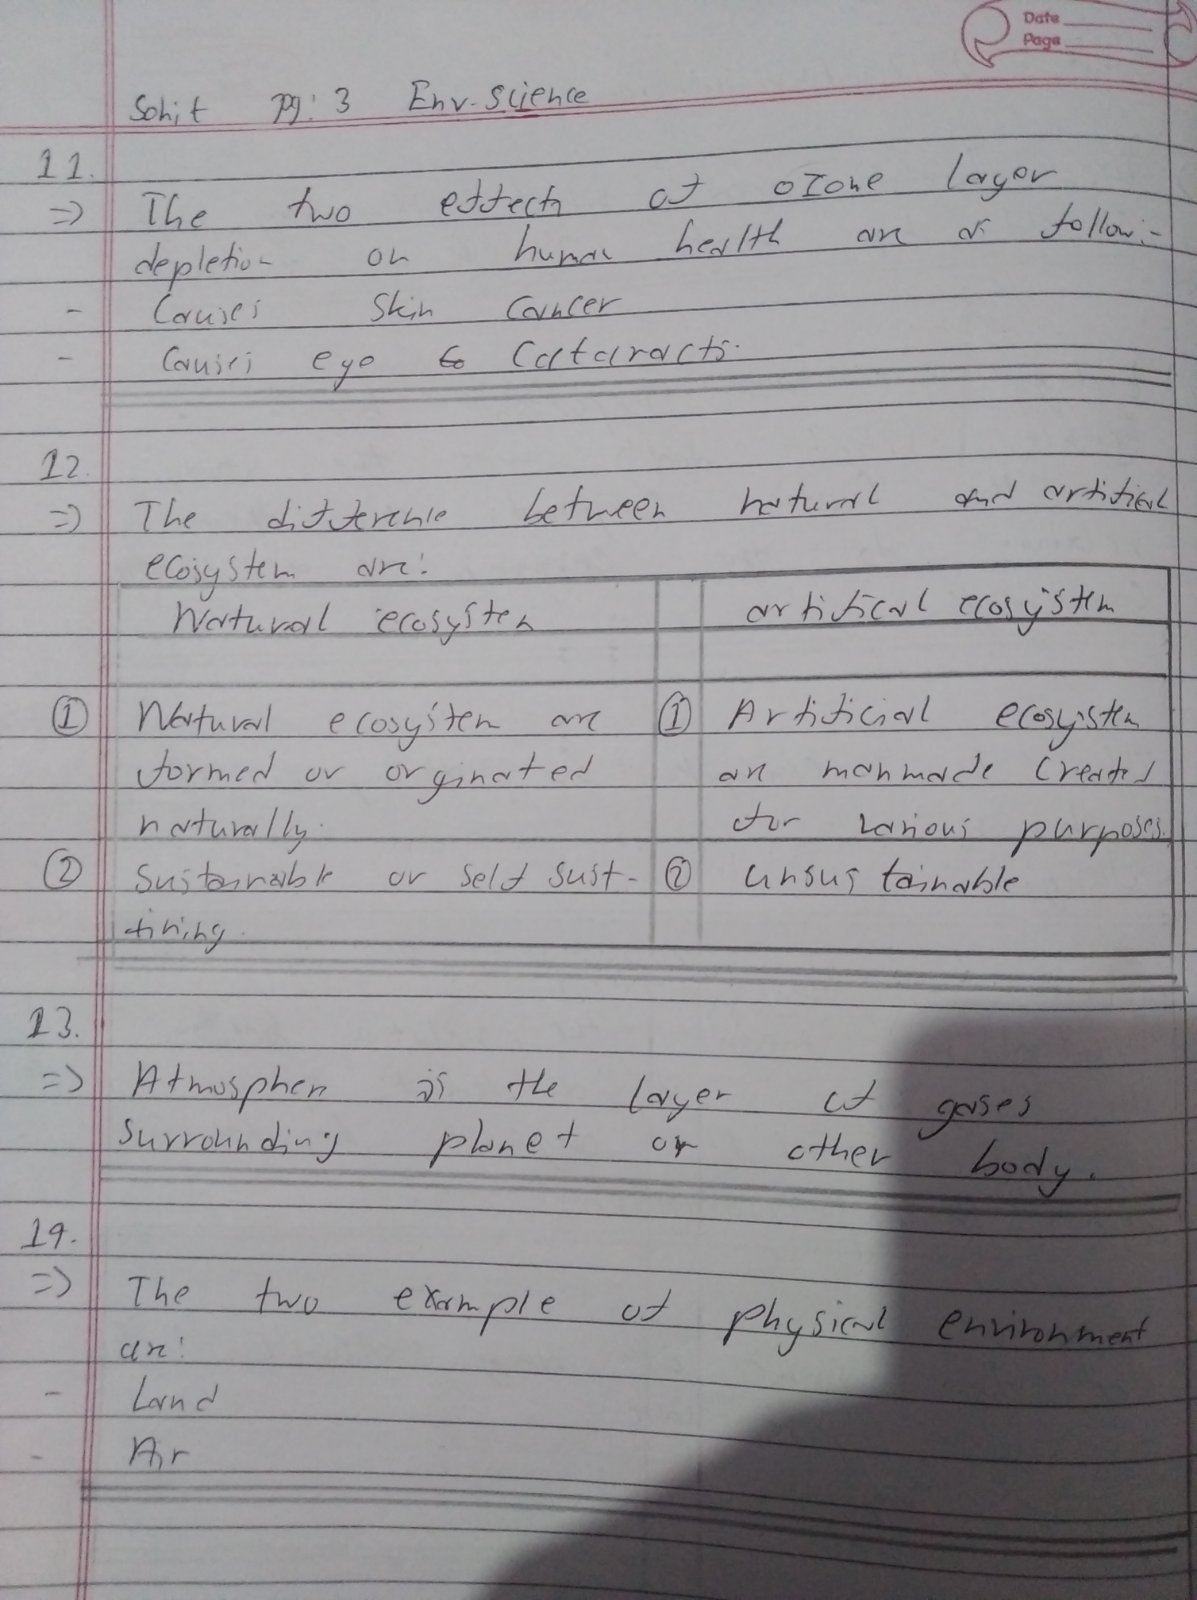 Date
Page
Sohit pg: 3 Env. Science
11.
=> The two effects of ozone layer
depletion on human health are as follow:-
- Causes skin cancer
- Causes eye Cataracts.
12.
=> The difference between natural and artifical
ecosystem are:
Natural ecosystem artifical ecosystem
① Natural ecosystem are ① Artificial ecosystem
formed or orginated are manmade created
naturally. for various purposes.
② Sustainable or self sust- ② unsustainable
tining.
13.
=> Atmosphere is the layer of gases
surrounding planet or other body.
14.
=> The two example of physical environment
are:
- Land
- Air